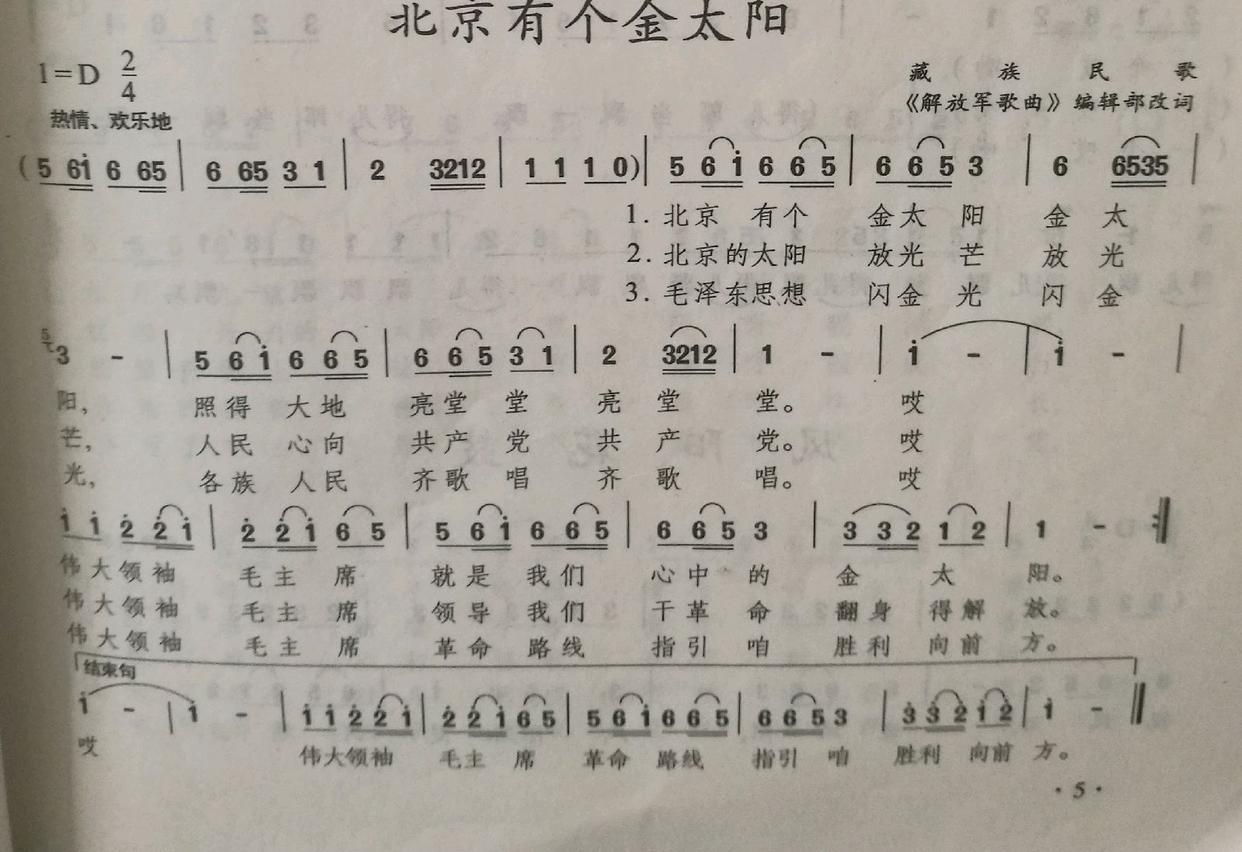 北京有个金太阳
1=D 2/4
藏族民歌
热情、欢乐地
《解放军歌曲》编辑部改词
(5 6i 6 65 | 6 65 3 1 | 2 3212 | 1 1 1 0) | 5 6 i 6 6 5 | 6 6 5 3 | 6 6535 |
1. 北京 有个 金太 阳 金 太
2. 北京的太阳 放光 芒 放 光
3. 毛泽东思想 闪金 光 闪 金
3 - | 5 6 i 6 6 5 | 6 6 5 3 1 | 2 3212 | 1 - | i - | i - |
阳, 照得 大地 亮堂 堂 亮 堂 堂。 哎
芒, 人民 心向 共产 党 共 产 党。 哎
光, 各族 人民 齐歌 唱 齐 歌 唱。 哎
i i 2̇ 2̇ i | 2̇ 2̇ i 6 5 | 5 6 i 6 6 5 | 6 6 5 3 | 3 3 2 1 2 | 1 - :|
伟大领袖 毛主 席 就是 我们 心中 的 金 太 阳。
伟大领袖 毛主 席 领导 我们 干革 命 翻身 得解 放。
伟大领袖 毛主 席 革命 路线 指引 咱 胜利 向前 方。
结束句
i - | i - | i i 2̇ 2̇ i | 2̇ 2̇ i 6 5 | 5 6 i 6 6 5 | 6 6 5 3 | 3̇ 3̇ 2̇ i 2̇ | i - ‖
哎 伟大领袖 毛主 席 革命 路线 指引 咱 胜利 向前 方。
·5·